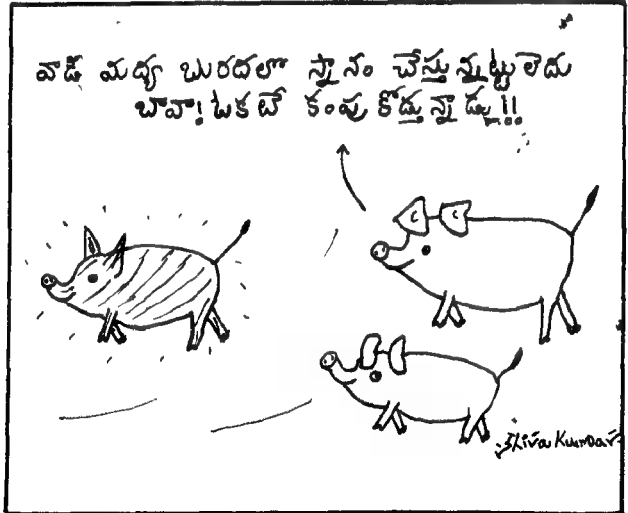 వాడీ మద్య బురదలో స్నానం చేస్తున్నట్టు లేదు
బావా! ఒకటే కంపు కోడ్తున్నాడ్సు!!
Shiva Kumar